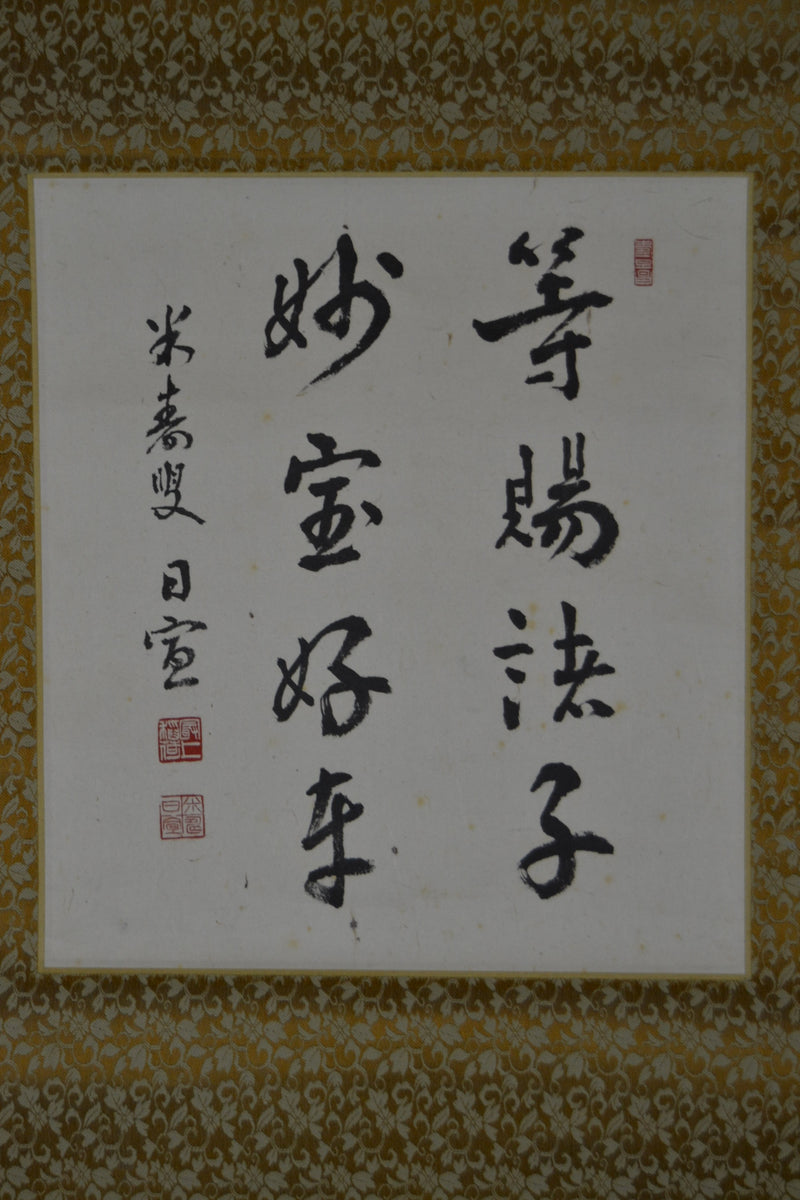 等賜諸子
妙宝好车
米寿叟 日宣